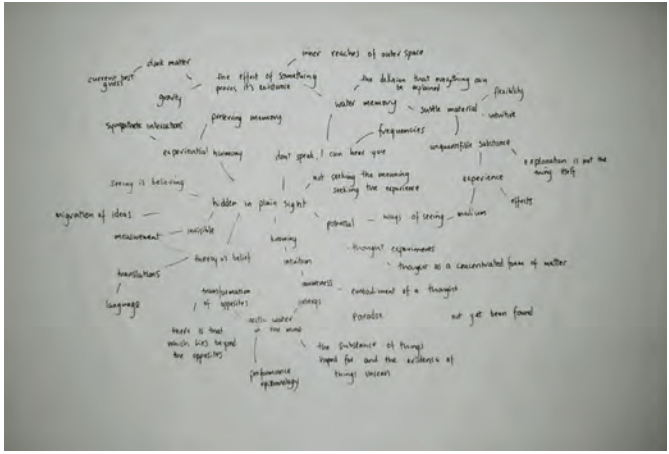 inner reaches of outer space
dark matter
current best
guess
the effect of something
proves it's existence
the delusion that everything can
be explained
flexibility
gravity
water memory
subtle material
intuitive
sympathetic interactions
perceiving
frequencies
experiential harmony
don't speak, I can hear you
unquantifiable substance
explanation is not the
thing itself
not seeking the meaning
seeking the experience
experience
seeing is believing
hidden in plain sight
effects
migration of ideas
potential
ways of seeing
medium
invisible
measurement
knowing
thought experiments
theory vs belief
intuition
thought as a concentrated form of matter
translations
awareness
embodiment of a thought
transformation
of opposites
language
Paradox
not yet been found
water
of the mind
there is that
which lies beyond
the opposites
the substance of things
hoped for and the evidence of
things unseen
performance
epistemology